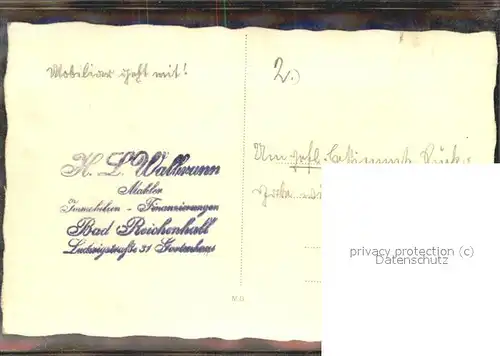 Mobiliar geht mit!
2.)
H. L. Wallbrunn
Makler
Immobilien - Finanzierungen
Bad Reichenhall
Ludwigstraße 31 Fortenhaus
Um gefl. bestimmte Rück-
M.D
privacy protection (c)
Datenschutz